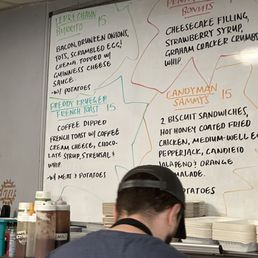 LEPRECHAUN
BURRITO 15
BACON, DRUNKEN ONIONS,
TOTS, SCRAMBLED EGG!
CHEDDA, TOPPED W/
GUINNESS CHEESE
SAUCE
W/ POTATOES
FREDDY KRUEGER
FRENCH TOAST 15
COFFEE DIPPED
FRENCH TOAST W/ COFFEE
CREAM CHEESE, CHOCO-
LATE SYRUP, STRWBAL &
WHIP
W/ MEAT & POTATOES
DONUTS
CHEESECAKE FILLING,
STRAWBERRY SYRUP,
GRAHAM CRACKER CRUMBS
WHIP
CANDYMAN
SAMMYS 15
2 BISCUIT SANDWICHES,
HOT HONEY COATED FRIED
CHICKEN, MEDIUM-WELL EGG
PEPPERJACK, CANDIED
JALAPENO & ORANGE
MALADE.
POTATOES